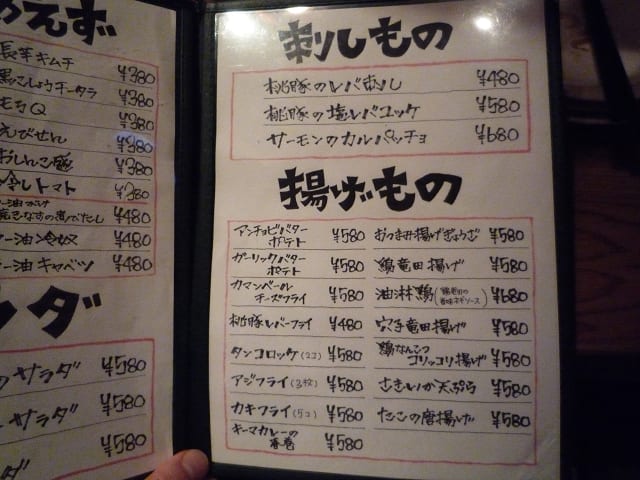 めえず
長芋キムチ ¥380
黒こしょうチータラ ¥380
もちQ ¥380
えびせん ¥380
おしんこ盛 ¥380
冷しトマト ¥380
¥480
油冷奴 ¥480
油キャベツ ¥480
ンダ
サラダ ¥580
サラダ ¥580
ダ ¥580
刺しもの
桃豚のレバ刺し ¥480
桃豚の塩レバユッケ ¥580
サーモンのカルパッチョ ¥680
揚げもの
アンチョビバター
ポテト ¥580
ガーリックバター
ポテト ¥580
カマンベール
チーズフライ ¥580
桃豚レバーフライ ¥480
タンコロッケ(2コ) ¥580
アジフライ(3枚) ¥580
カキフライ(5コ) ¥580
キーマカレーの
春巻 ¥580
おつまみ揚げぎょうざ ¥580
鶏竜田揚げ ¥580
油淋鶏 ¥680
穴子竜田揚げ ¥580
鶏なんこつ
コリッコリ揚げ ¥580
さきいか天ぷら ¥580
たこの唐揚げ ¥580